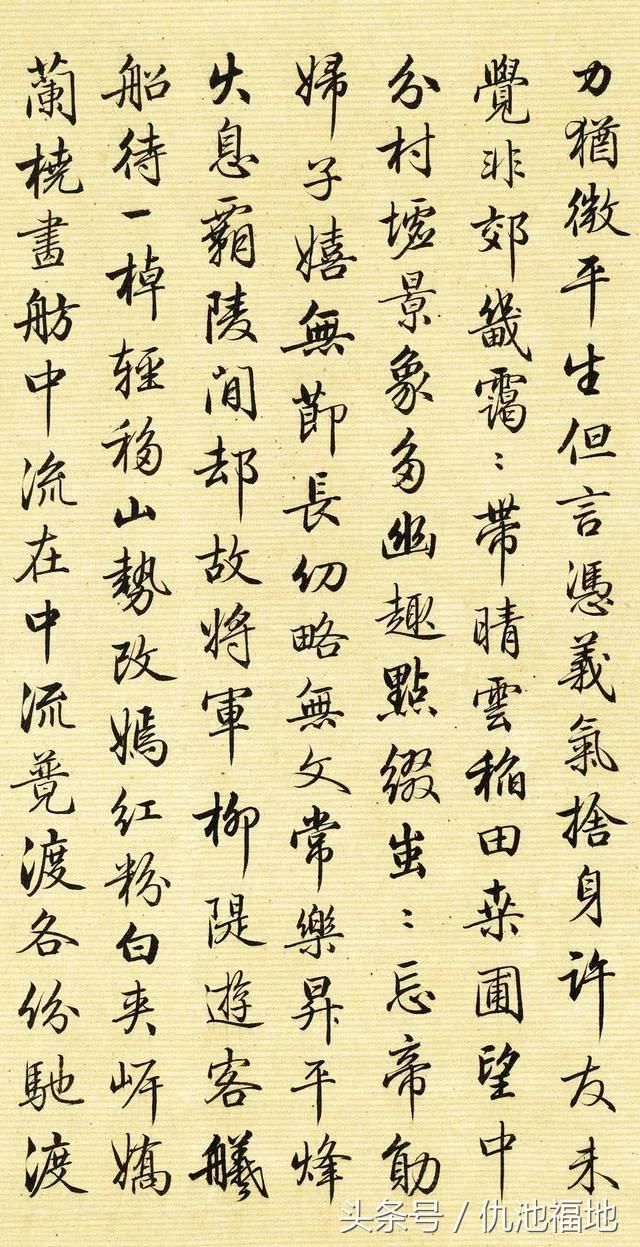 力猶微平生但言憑義氣捨身許友未
覺非郊畿靄〻帶晴雲稻田桑圃望中
分村墟景象多幽趣點綴蚩〻忘帝勛
婦子嬉無節長幼略無文常樂昇平烽
火息霸陵閒却故將軍柳隄遊客艤
船待一棹輕移山勢改嫣紅粉白夾岸嬌
蘭橈畫舫中流在中流競渡各份馳渡
头条号 / 仇池福地